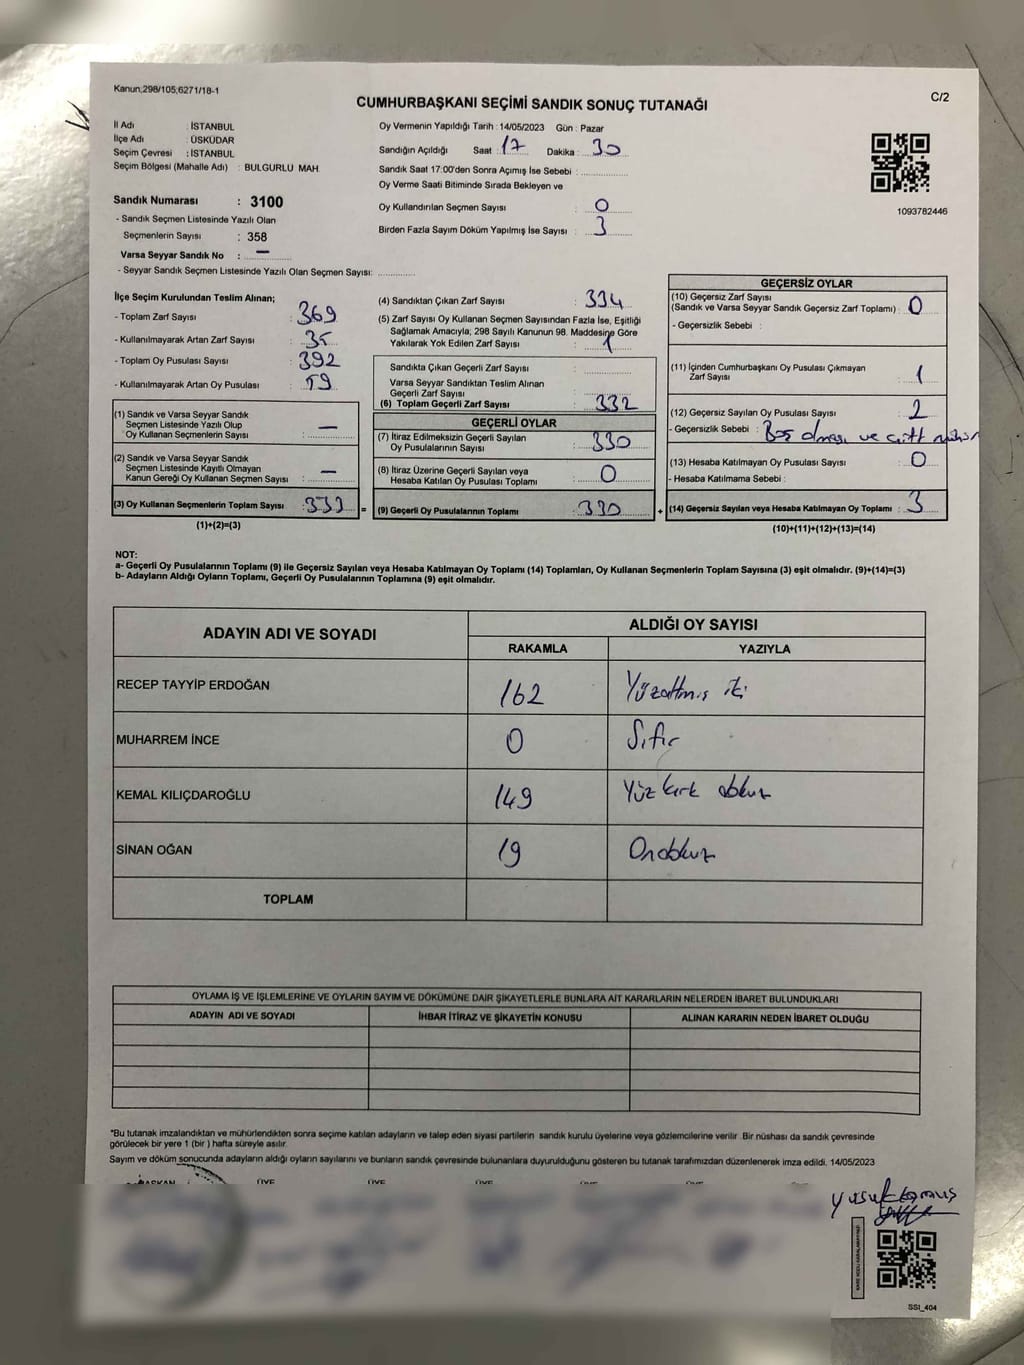 Kanun;298/105;6271/18-1
C/2
CUMHURBAŞKANI SEÇİMİ SANDIK SONUÇ TUTANAĞI
İl Adı : İSTANBUL
İlçe Adı : ÜSKÜDAR
Seçim Çevresi : İSTANBUL
Seçim Bölgesi (Mahalle Adı) : BULGURLU MAH.
Sandık Numarası : 3100
- Sandık Seçmen Listesinde Yazılı Olan
Seçmenlerin Sayısı : 358
Varsa Seyyar Sandık No : —
- Seyyar Sandık Seçmen Listesinde Yazılı Olan Seçmen Sayısı:
Oy Vermenin Yapıldığı Tarih : 14/05/2023 Gün : Pazar
Sandığın Açıldığı Saat : 17 Dakika : 30
Sandık Saat 17:00'den Sonra Açımış İse Sebebi :
Oy Verme Saati Bitiminde Sırada Bekleyen ve
Oy Kullandırılan Seçmen Sayısı : 0
Birden Fazla Sayım Döküm Yapılmış İse Sayısı : 3
1093782446
İlçe Seçim Kurulundan Teslim Alınan;
- Toplam Zarf Sayısı : 369
- Kullanılmayarak Artan Zarf Sayısı : 35
- Toplam Oy Pusulası Sayısı : 392
- Kullanılmayarak Artan Oy Pusulası : 59
(1) Sandık ve Varsa Seyyar Sandık
Seçmen Listesinde Yazılı Olup
Oy Kullanan Seçmenlerin Sayısı : —
(2) Sandık ve Varsa Seyyar Sandık
Seçmen Listesinde Kayıtlı Olmayan
Kanun Gereği Oy Kullanan Seçmen Sayısı : —
(3) Oy Kullanan Seçmenlerin Toplam Sayısı : 333 =
(1)+(2)=(3)
(4) Sandıktan Çıkan Zarf Sayısı : 334
(5) Zarf Sayısı Oy Kullanan Seçmen Sayısından Fazla İse, Eşitliği
Sağlamak Amacıyla; 298 Sayılı Kanunun 98. Maddesine Göre
Yakılarak Yok Edilen Zarf Sayısı : 1
Sandıkta Çıkan Geçerli Zarf Sayısı :
Varsa Seyyar Sandıktan Teslim Alınan
Geçerli Zarf Sayısı :
(6) Toplam Geçerli Zarf Sayısı : 332
GEÇERLİ OYLAR
(7) İtiraz Edilmeksizin Geçerli Sayılan
Oy Pusulası Sayısı : 330
(8) İtiraz Üzerine Geçerli Sayılan veya
Hesaba Katılan Oy Pusulası Toplamı : 0
(9) Geçerli Oy Pusulalarının Toplamı : 330 +
GEÇERSİZ OYLAR
(10) Geçersiz Zarf Sayısı
(Sandık ve Varsa Seyyar Sandık Geçersiz Zarf Toplamı) : 0
- Geçersizlik Sebebi :
(11) İçinden Cumhurbaşkanı Oy Pusulası Çıkmayan
Zarf Sayısı : 1
(12) Geçersiz Sayılan Oy Pusulası Sayısı : 2
- Geçersizlik Sebebi : Boş olması ve çift mühür
(13) Hesaba Katılmayan Oy Pusulası Sayısı : 0
- Hesaba Katılmama Sebebi :
(14) Geçersiz Sayılan veya Hesaba Katılmayan Oy Toplamı : 3
(10)+(11)+(12)+(13)=(14)
NOT:
a- Geçerli Oy Pusulalarının Toplamı (9) ile Geçersiz Sayılan veya Hesaba Katılmayan Oy Toplamı (14) Toplamları, Oy Kullanan Seçmenlerin Toplam Sayısına (3) eşit olmalıdır. (9)+(14)=(3)
b- Adayların Aldığı Oyların Toplamı, Geçerli Oy Pusulalarının Toplamına (9) eşit olmalıdır.
ADAYIN ADI VE SOYADI
ALDIĞI OY SAYISI
RAKAMLA YAZIYLA
RECEP TAYYİP ERDOĞAN 162 Yüzaltmış iki
MUHARREM İNCE 0 Sıfır
KEMAL KILIÇDAROĞLU 149 Yüz kırk dokuz
SİNAN OĞAN 19 Ondokuz
TOPLAM
OYLAMA İŞ VE İŞLEMLERİNE VE OYLARIN SAYIM VE DÖKÜMÜNE DAİR ŞİKAYETLERLE BUNLARA AİT KARARLARIN NELERDEN İBARET BULUNDUKLARI
ADAYIN ADI VE SOYADI İHBAR İTİRAZ VE ŞİKAYETİN KONUSU ALINAN KARARIN NEDEN İBARET OLDUĞU
*Bu tutanak imzalandıktan ve mühürlendikten sonra seçime katılan adayların ve talep eden siyasi partilerin sandık kurulu üyelerine veya gözlemcilerine verilir. Bir nüshası da sandık çevresinde
görülecek bir yere 1 (bir) hafta süreyle asılır.
Sayım ve döküm sonucunda adayların aldığı oyların sayılarını ve bunların sandık çevresinde bulunanlara duyurulduğunu gösteren bu tutanak tarafımızdan düzenlenerek imza edildi. 14/05/2023
BAŞKAN ÜYE ÜYE ÜYE ÜYE ÜYE
SSI_404